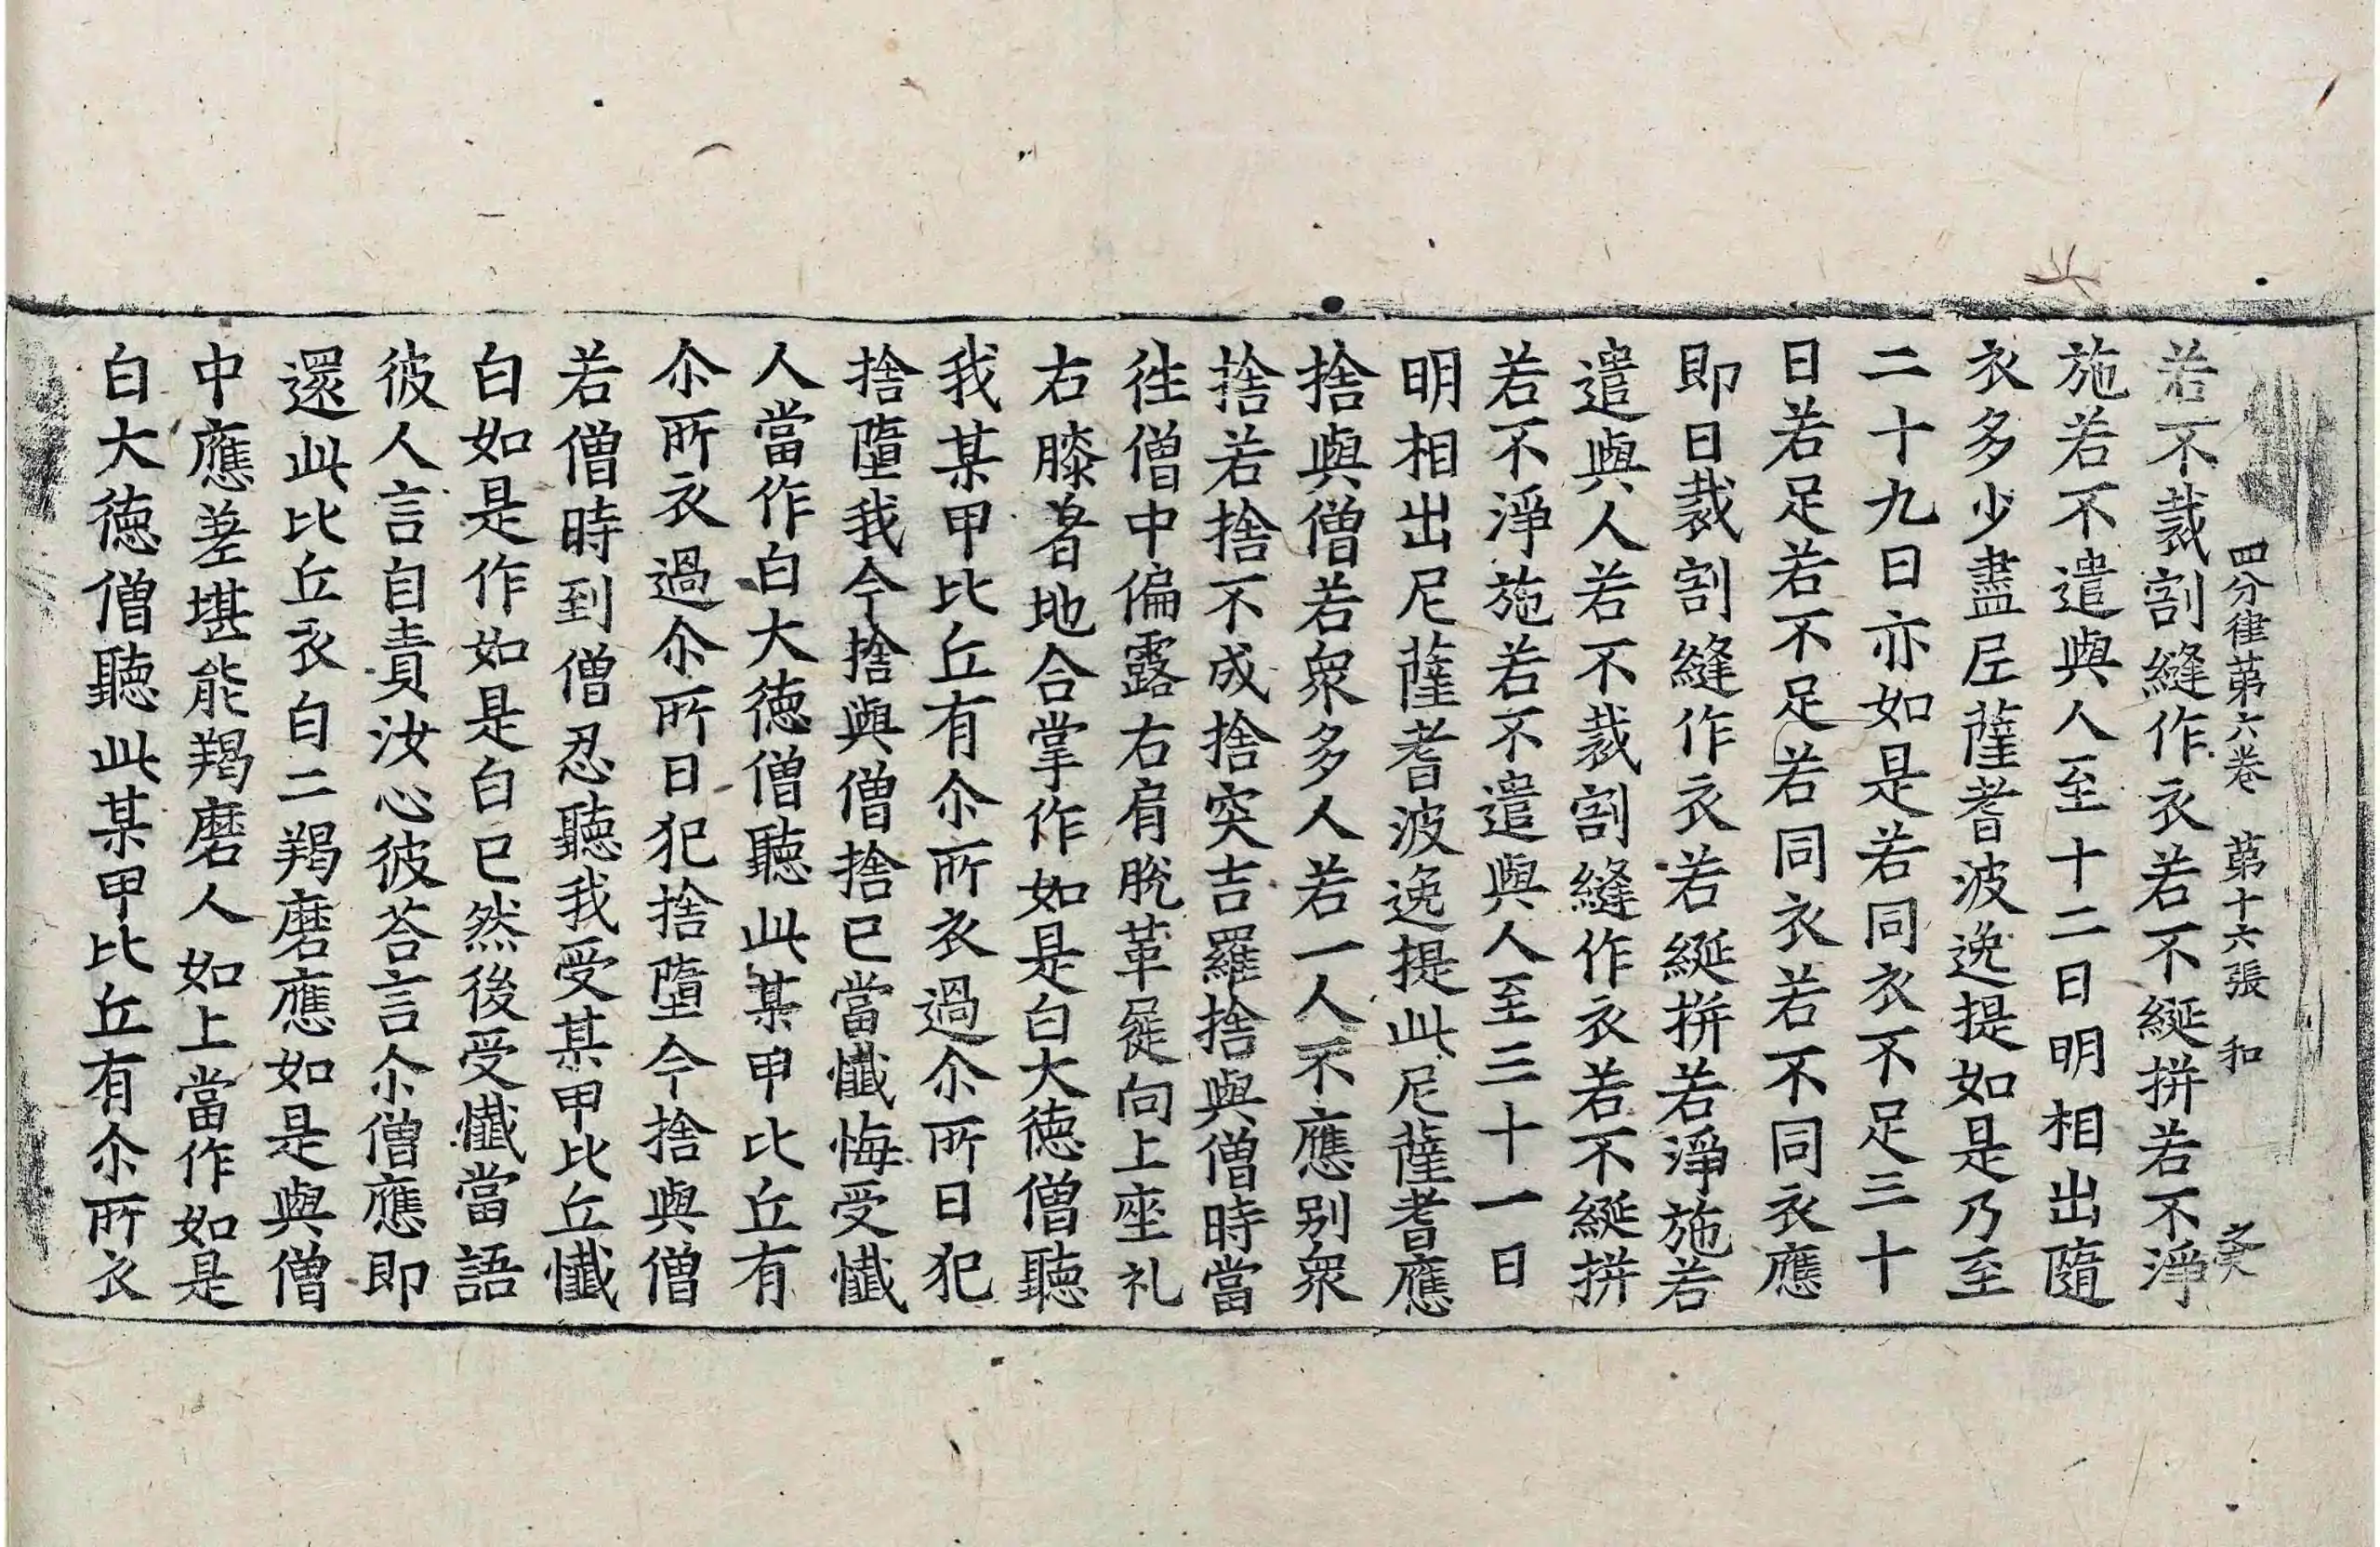 四分律第六卷 第十六張 和
若不裁割縫作衣若不綖拼若不淨
施若不遣與人至十二日明相出隨
衣多少盡尼薩耆波逸提如是乃至
二十九日亦如是若同衣不足三十
日若足若不足若同衣若不同衣應
即日裁割縫作衣若綖拼若淨施若
遣與人若不裁割縫作衣若不綖拼
若不淨施若不遣與人至三十一日
明相出尼薩耆波逸提此尼薩耆應
捨與僧若衆多人若一人不應別衆
捨若捨不成捨突吉羅捨與僧時當
徃僧中偏露右肩脫革屣向上座礼
右膝着地合掌作如是白大德僧聽
我某甲比丘有尒所衣過尒所日犯
捨墮我今捨與僧捨已當懺悔受懺
人當作白大德僧聽此某甲比丘有
尒所衣過尒所日犯捨墮今捨與僧
若僧時到僧忍聽我受某甲比丘懺
白如是作如是白已然後受懺當語
彼人言自責汝心彼荅言尒僧應即
還此比丘衣白二羯磨應如是與僧
中應差堪能羯磨人如上當作如是
白大德僧聽此某甲比丘有尒所衣